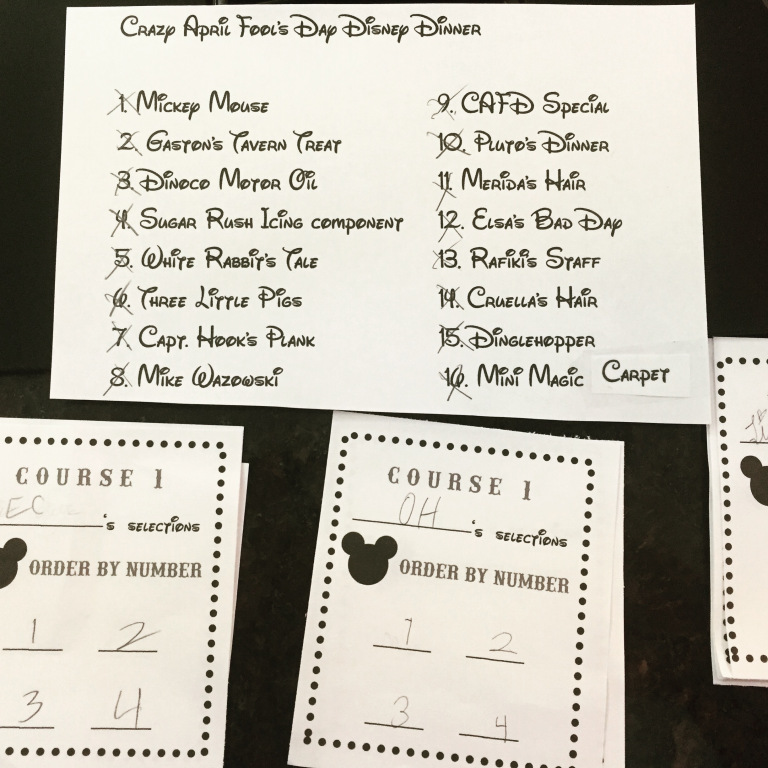 Crazy April Fool's Day Disney Dinner
1. Mickey Mouse
2. Gaston's Tavern Treat
3. Dinoco Motor Oil
4. Sugar Rush Icing component
5. White Rabbit's Tale
6. Three Little Pigs
7. Capt. Hook's Plank
8. Mike Wazowski
9. CAFD Special
10. Pluto's Dinner
11. Merida's Hair
12. Elsa's Bad Day
13. Rafiki's Staff
14. Cruella's Hair
15. Dinglehopper
16. Mini Magic Carpet
COURSE 1
EC 's selections
ORDER BY NUMBER
1 2
3 4
COURSE 1
OH 's selections
ORDER BY NUMBER
1 2
3 4